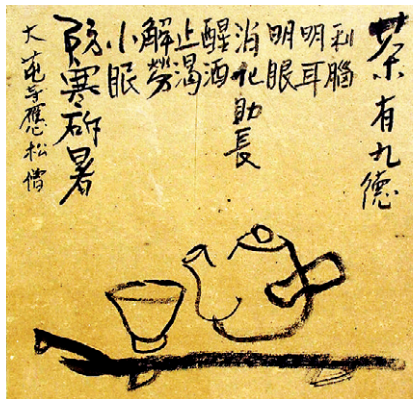 茶有九德
利腦
明耳
明眼
消化助長
醒酒
止渴
解勞
小眠
防寒陟暑
大芚寺應松僧